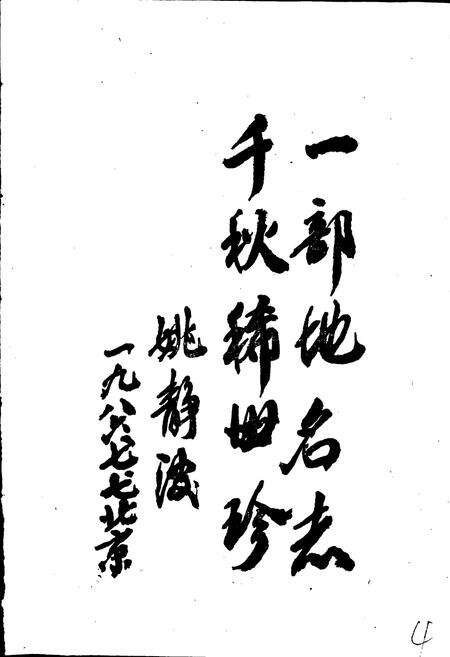 一部地名志
千秋稀世珍
姚静波
一九八六七七北京
4